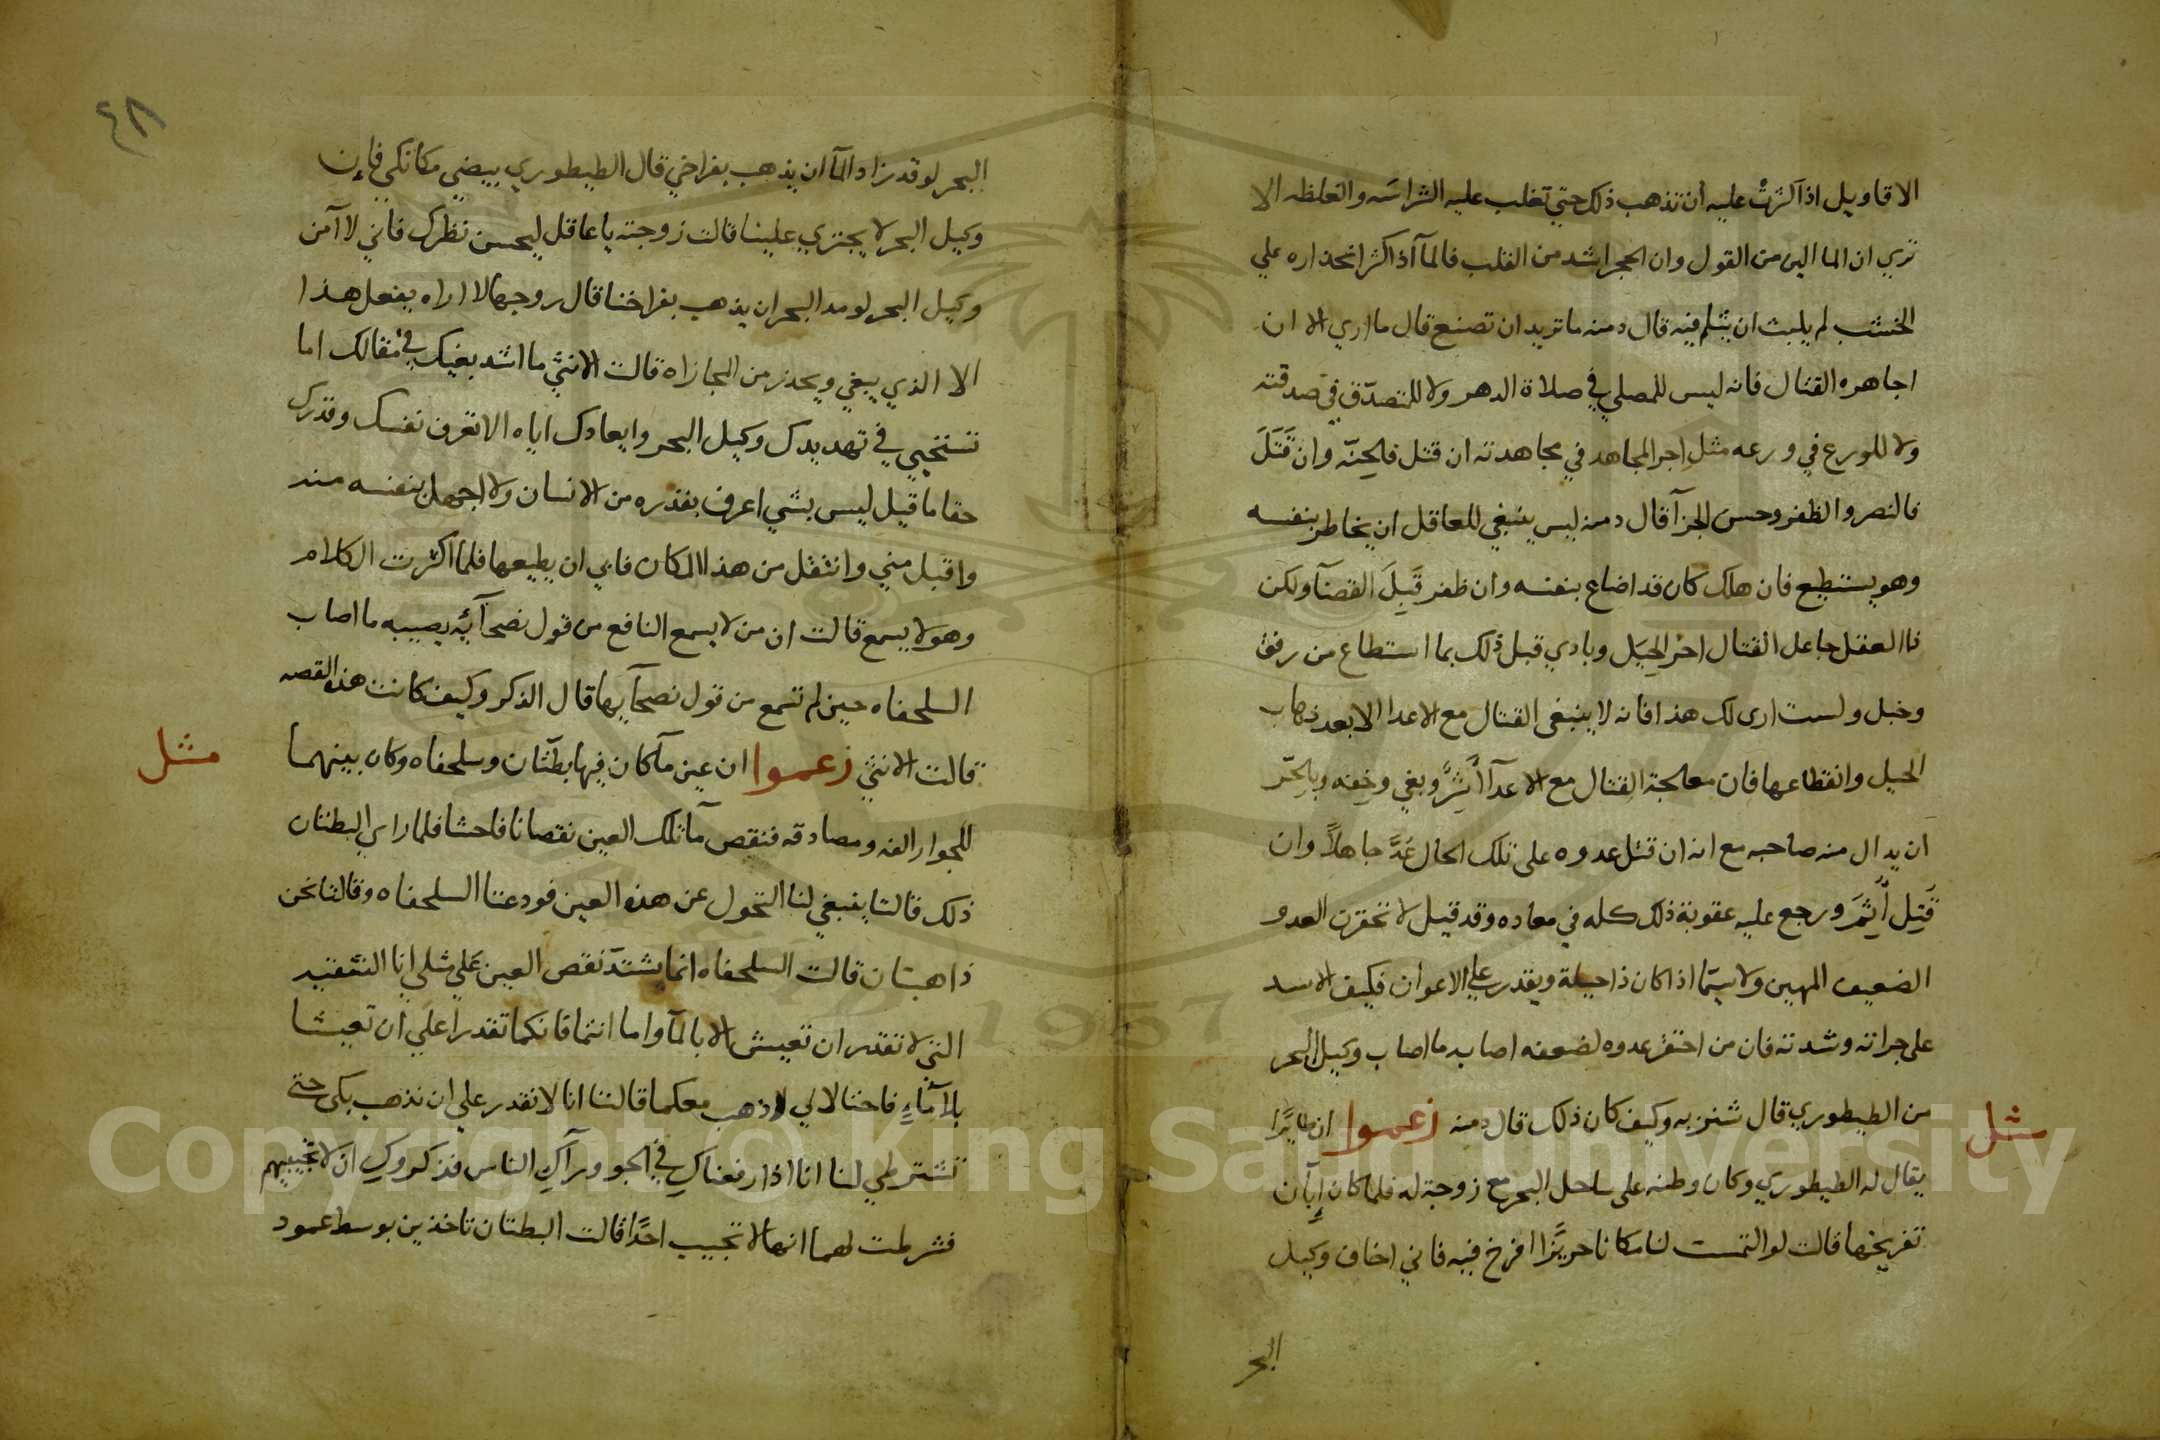 الاقاويل اذا كثرت عليه ان تذهب ذلك حتي تغلب عليه الشراسه والغلظه الا
تري ان الما الين من القول وان الحجر اشد من القلب فالمآ اذا كثر انحداره علي
الخشب لم يلبث ان يثلم فيه قال دمنه ما تريد ان تصنع قال ما اري الا ان
اجاهره القتال فانه ليس للمصلي في صلاة الدهر ولا للمتصدّق في صدقته
ولا للورع في ورعه مثل اجر المجاهد في مجاهدته ان قتل فالجنّه وان قَتَلَ
فالنصر والظفر وحسن الجزآ قال دمنه ليس ينبغي للعاقل ان يخاطر بنفسه
وهو يستطيع فان هلك كان قد اضاع بنفسه وان ظفر قَبِلَ القضآ ولكن
ذا العقل جاعل القتال اخر الحِيَل وبادي قبل ذلك بما استطاع من رفق
وخيل ولست ارى لك هذا فانه لا ينبغى القتال مع الاعدا الا بعد ذهاب
الحيل وانقطاعها فان معالجة القتال مع الاعدآ أَشِرٌ وبغي وخفه وبالحرّ
ان يدال منه صاحبه مع انه ان قتل عدوه على تلك الحال عُدَّ جاهلاً وان
قَتِل أَثِمَ ورجع عليه عقوبة ذلك كله في معاده وقد قيل لا تحقرن العدو
الضعيف المهين ولا سيّما اذا كان ذا حيلة ويقدر علي الاعوان فكيف الاسد
على جراته وشدته فان من احتقر عدوه لضعفه اصابه ما اصاب وكيل البحر
من الطيطوري قال شنزبه وكيف كان ذلك قال دمنه زعموا ان طايرًا
مثل
يقال له الطيطوري وكان وطنه على ساحل البحر مع زوجة له فلما كان إِبآن
تفريخها قالت لو التمست لنا مكانا حريزًا افرخ فيه فاني اخاف وكيل
البحر
٤٨
البحر لو قد زاد المآ ان يذهب بفراخي قال الطيطوري بيضي مكانكي فإن
وكيل البحر لا يجتري علينا قالت زوجته يا عاقل ليحسن نظرك فاني لا آمن
وكيل البحر لو مد البحر ان يذهب بفراخنا قال زوجها لا اراه يفعل هذا
الا الذي يبغي ويحذر من المجازاه قالت الانثي ما اشد بغيك في مقالك اما
تستحيي في تهديدك وكيل البحر وايعادك اياه الا تعرف نفسك وقدرك
حقا ما قيل ليس بشي اعرف بقدره من الانسان ولا اجهل بنفسه منه
واقبل مني وانتقل من هذا المكان فابي ان يطيعها فلما اكثرت الكلام
وهو لا يسمع قالت ان من لا يسمع النافع من قول نصحآيه يصيبه ما اصاب
السلحفاه حين لم تسمع من قول نصحآيها قال الذكر وكيف كانت هذه القصه
قالت الانثي زعموا ان عين مآ كان فيها بطّتان وسلحفاه وكان بينهما
مثل
للجوار الفه ومصادقه فنقص مآ تلك العين نقصانا فاحشا فلما راي البطتان
ذلك قالتا ينبغي لنا التحول عن هذه العين فودعتا السلحفاه وقالتا نحن
ذاهبتان قالت السلحفاه انما يشتدّ نقص العين عَلي مثلي انا
التي لا تقدر ان تعيش الا بالمآ واما انتما فانكما تقدرا علي ان تعيشا
بلا مآءٍ فاحتالا لي لاذهب معكما قالتا انا لا نقدر علي ان نذهب بكي حتى
تشترطي لنا انا اذا رفعناكِ في الجو ورآكِ الناس فذكروكِ ان لا تجيبيهم
فشرطت لهما انها لا تجيب احدًا قالت البطتان تاخذين بوسط عمود